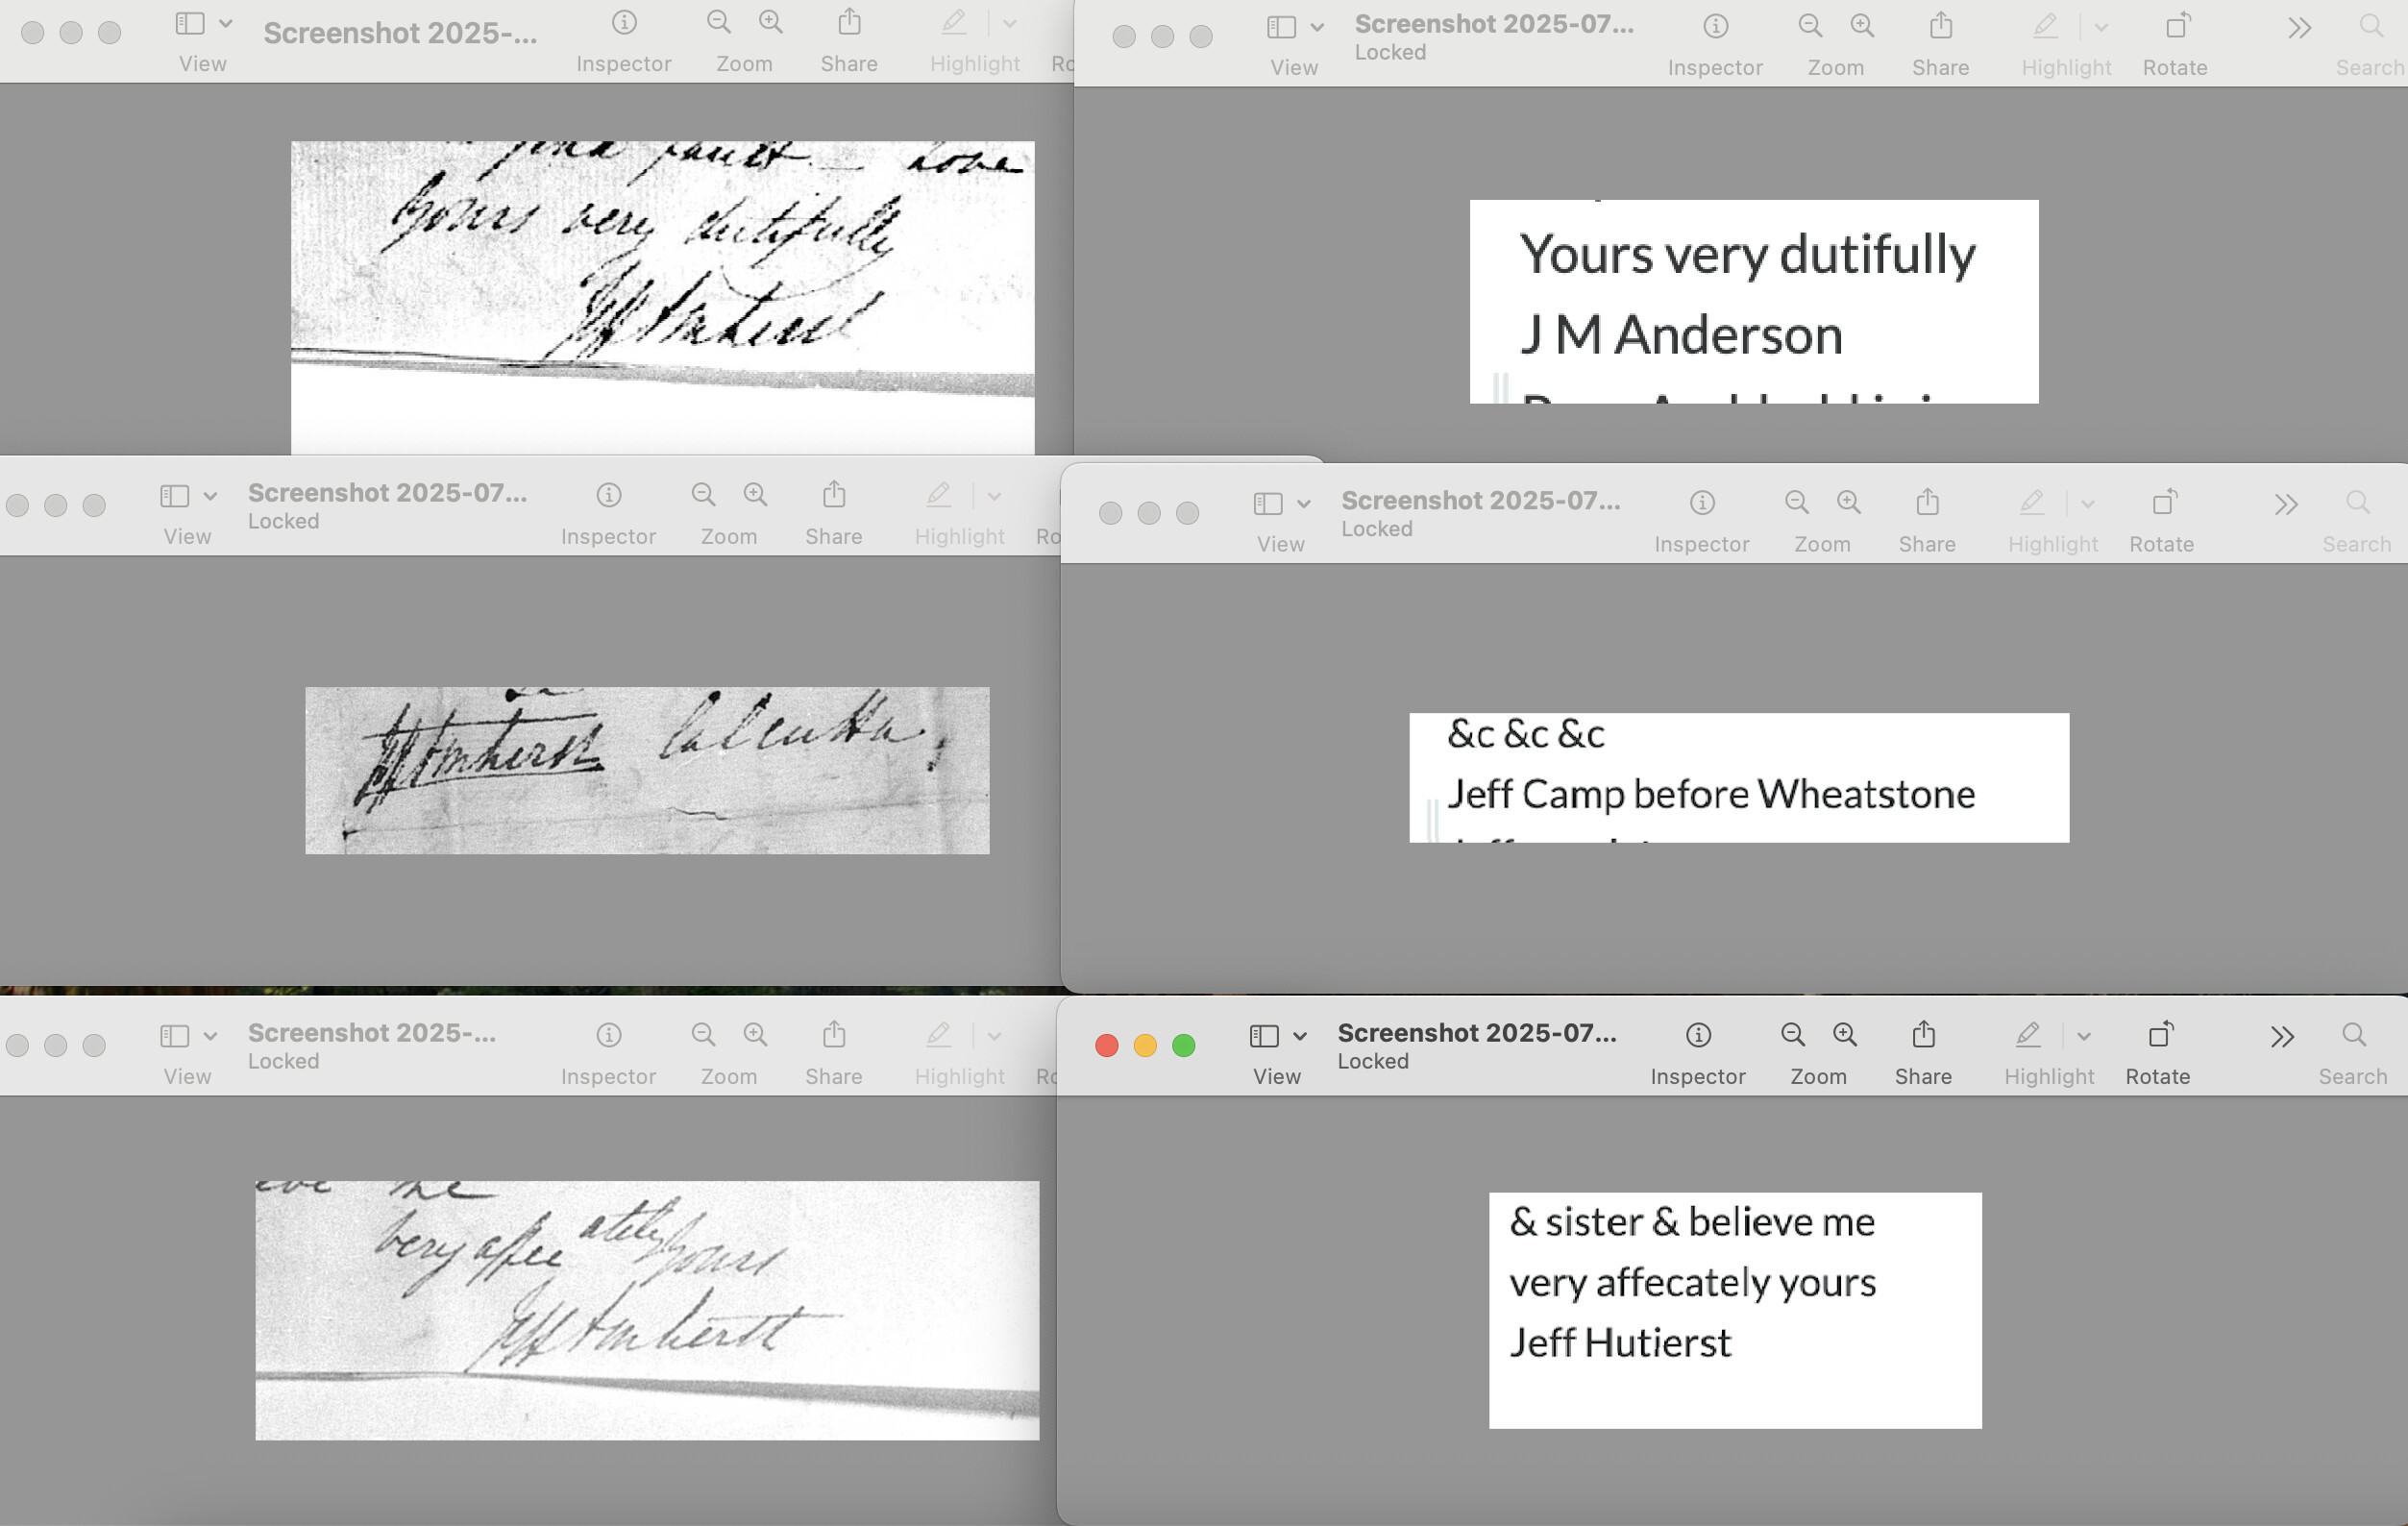 Screenshot 2025-...
View
Inspector
Zoom
Share
Highlight
Ro
find fault — Love
Yours very dutifully
Jeff Amherst
Screenshot 2025-07...
Locked
View
Inspector
Zoom
Share
Highlight
Rotate
Search
Yours very dutifully
J M Anderson
Screenshot 2025-07...
Locked
View
Inspector
Zoom
Share
Highlight
Ro
Jeff Amherst Calcutta
Screenshot 2025-07...
Locked
View
Inspector
Zoom
Share
Highlight
Rotate
Search
&c &c &c
Jeff Camp before Wheatstone
Screenshot 2025-...
Locked
View
Inspector
Zoom
Share
Highlight
Ro
eve me
very affec ately yours
Jeff Amherst
Screenshot 2025-07...
Locked
View
Inspector
Zoom
Share
Highlight
Rotate
Search
& sister & believe me
very affecately yours
Jeff Hutierst